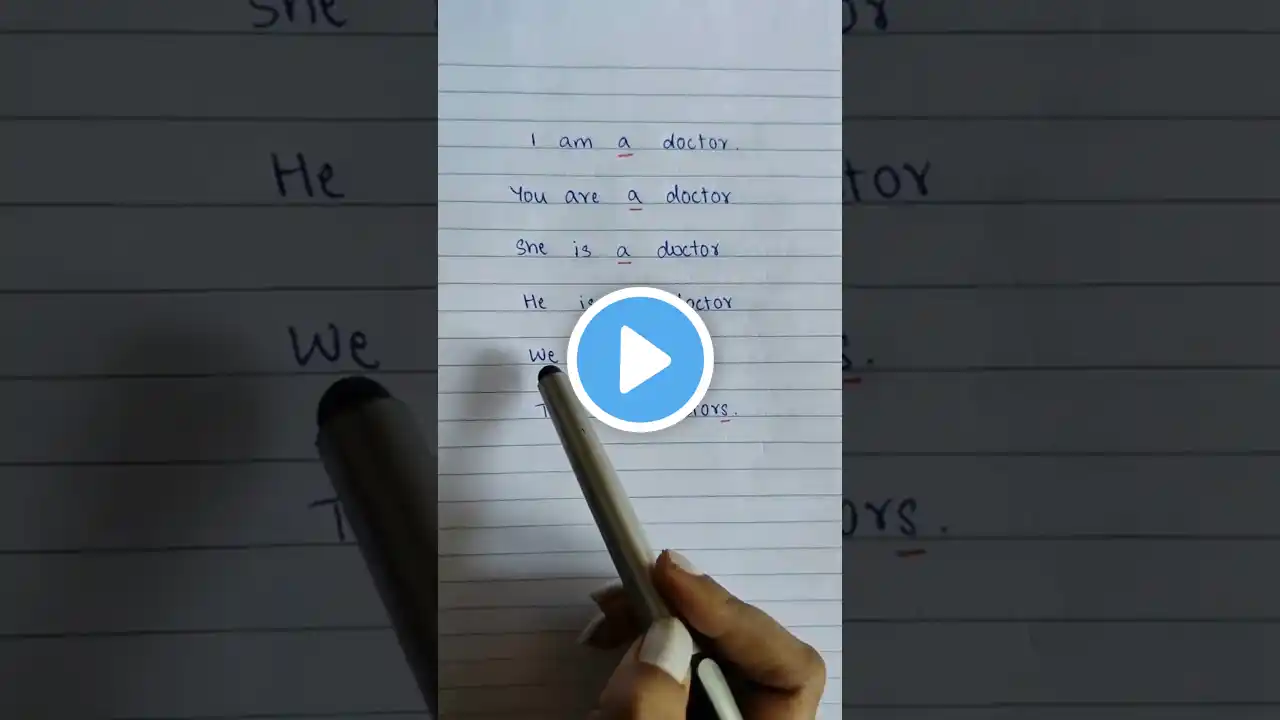 I am a doctor.
You are a doctor
She is a doctor
He is doctor
We